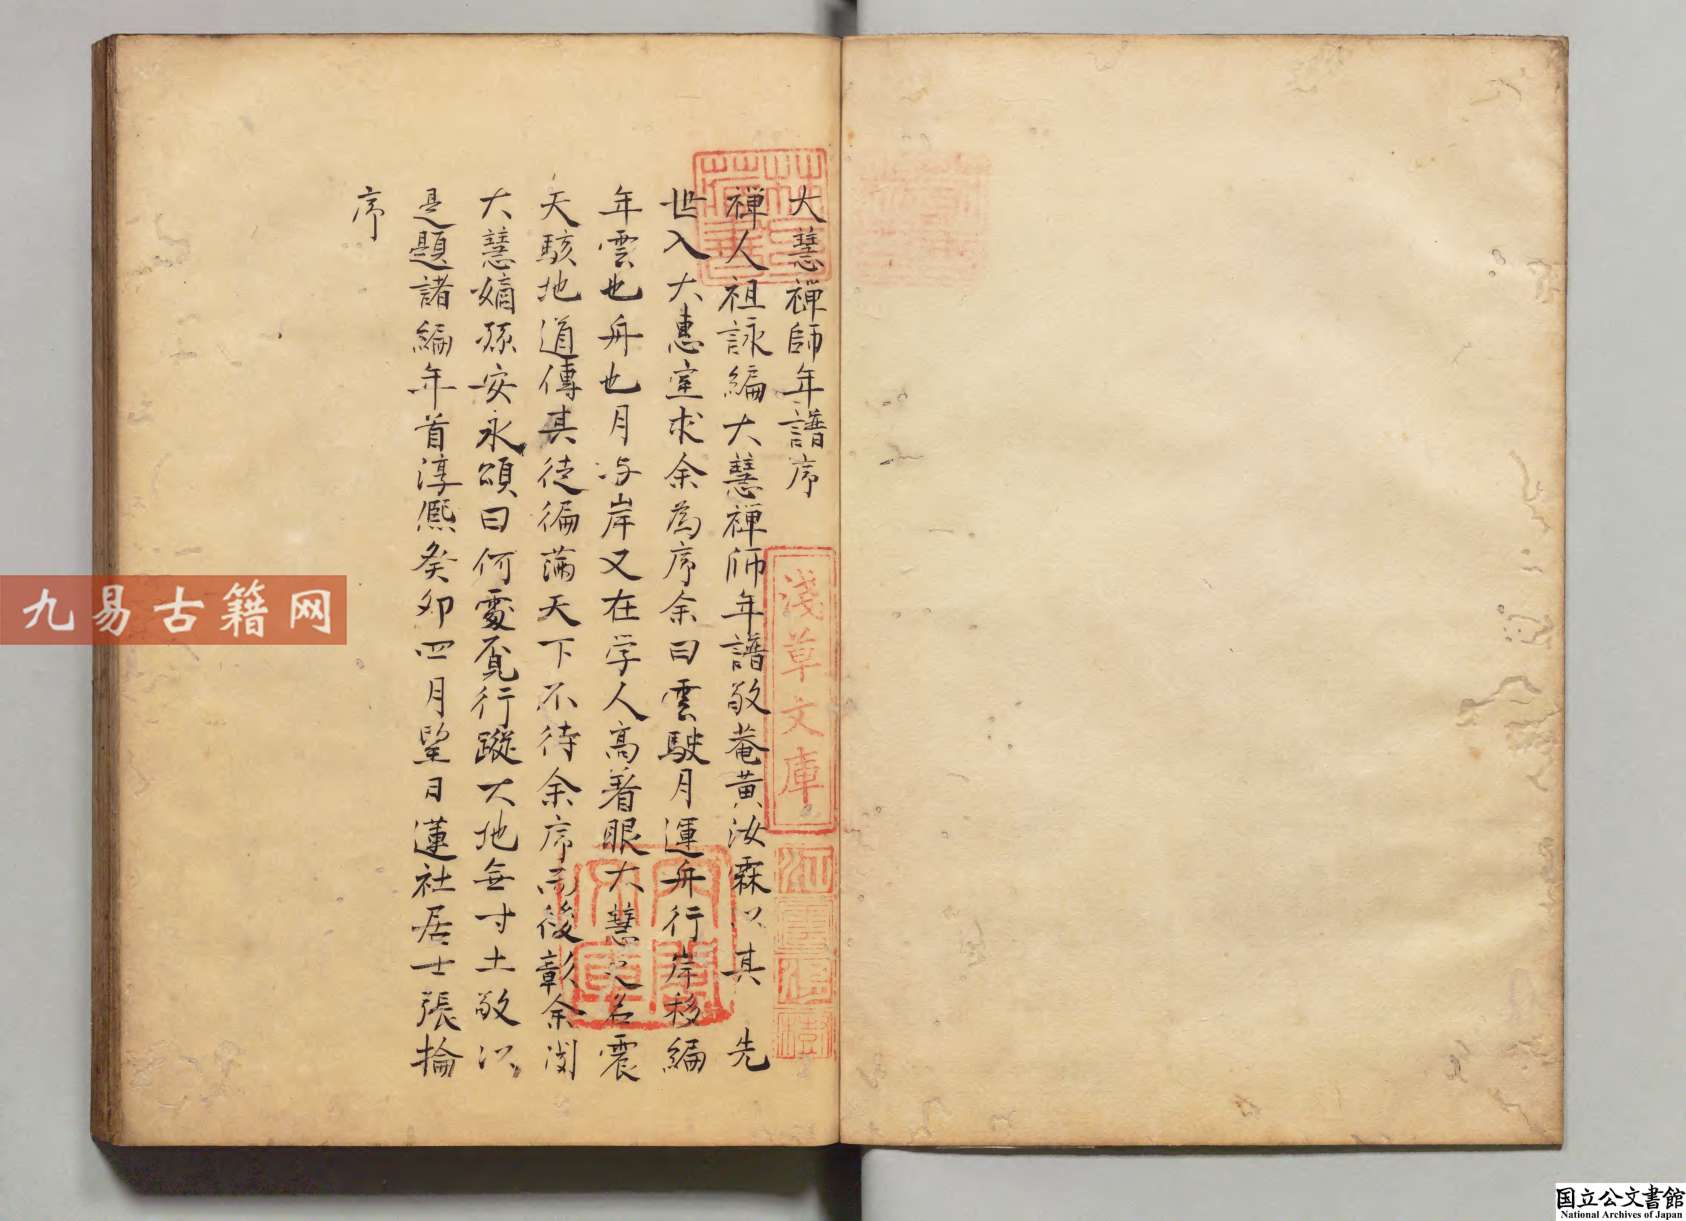 大慧禪師年譜序
禅人祖詠編大慧禅師年譜敬菴黄汝霖以其　先
世入大惠室求余為序余曰雲駛月運舟行岸移編
年雲也舟也月与岸又在学人高着眼大慧之名震
天駭地道傳其徒徧滿天下不待余序而後彰余閲
大慧嫡孫安永頌曰何處覓行蹤大地無寸土敬以
是題諸編年首淳熈癸卯四月望日蓮社居士張掄
序
林氏藏書
淺草文庫
江雲渭樹
九易古籍网
国立公文書館
National Archives of Japan